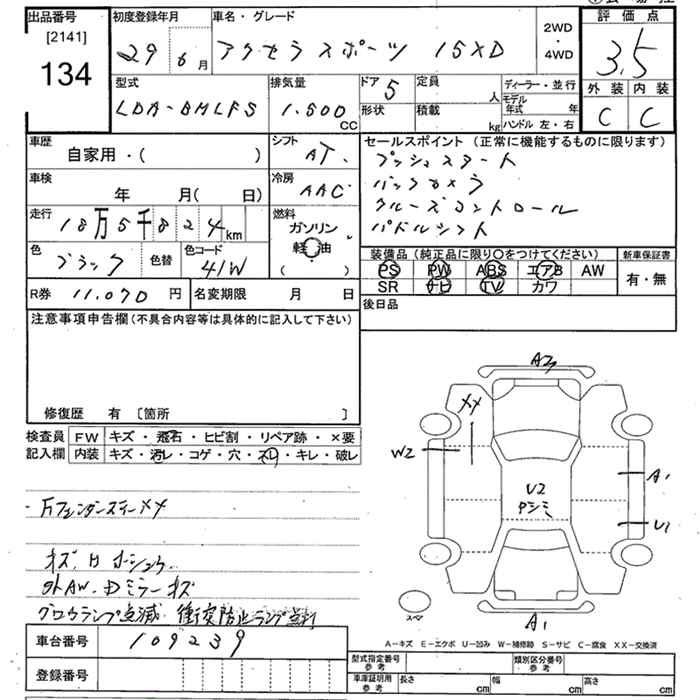 出品番号
[2141]
134
初度登録年月
29 6月
車名・グレード
アクセラスポーツ 15XD
2WD
・
4WD
評価点
3.5
外装 内装
C C
型式
LDA-BMLFS
排気量
1.500
CC
ドア 5
形状
定員
人
積載
kg
ディーラー・並行
モデル
年式 年
ハンドル 左・右
車歴
自家用・( )
シフト
AT
セールスポイント (正常に機能するものに限ります)
プッシュスタート
バックカメラ
クルーズコントロール
パドルシフト
車検
年 月(日)
冷房
AAC
走行
18万5千824km
燃料
ガソリン
軽油
( )
色
ブラック
色替
色コード
41W
装備品 (純正品に限り〇をつけてください)
PS PW ABS エアB AW
SR ナビ TV カワ
新車保証書
有・無
R券 11.070 円
名変期限 月 日
後日品
注意事項申告欄 (不具合内容等は具体的に記入して下さい)
修復歴 有 〔箇所 〕
検査員
記入欄
FW キズ・飛石・ヒビ割・リペア跡・×要
内装 キズ・汚レ・コゲ・穴・スレ・キレ・破レ
キズ、H
外AW・Dミラーキズ
グロウランプ点滅 衝突防止ランプ点灯
A2
XX
W2
U2
A1
U1
A1
スペア
A-キズ E-エクボ U-凹み W-補修跡 S-サビ C-腐食 XX-交換済
車台番号 109239
登録番号
型式指定番号
参考
類別区分番号
参考
車庫証明用
参考
長さ cm 幅 cm 高さ cm